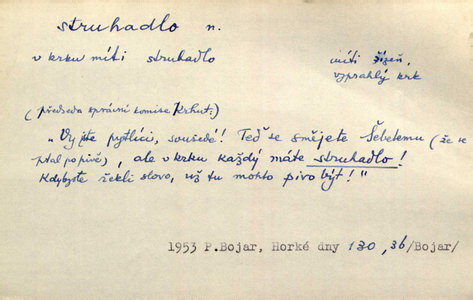 struhadlo n.
v krku míti struhadlo
míti žízeň,
vyprahlý krk
(předseda správní komise Krhut:)
"Vy jste pytlíci, sousedé! Teď se smějete Šebetemu (že se
ptal po pivě), ale v krku každý máte struhadlo!
Kdybyste řekli slovo, už tu mohlo pivo být!"
1953 P.Bojar, Horké dny 130, 36/Bojar/